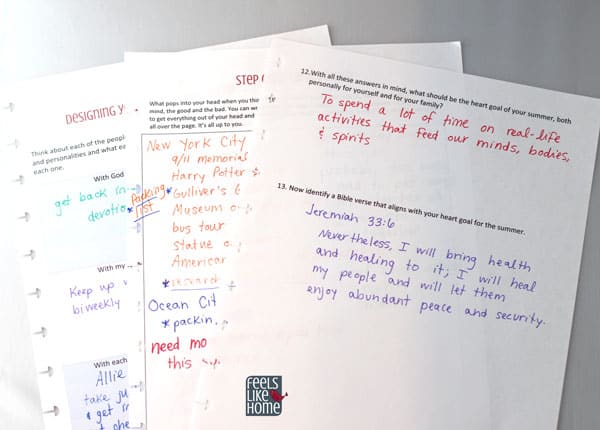 Designing y
Think about each of the peopl
and personalities and what ea
each one.
With God
get back in
devotio
With my
Keep up
biweekly
With each
Allie
take ju
& get
& che
Step
What pops into your head when you thin
mind, the good and the bad. You can wr
to get everything out of your head and
all over the page. It's all up to you.
New York City
9/11 memorial
Harry Potter
packing list
*Gulliver's G
Museum o
bus tour
Statue o
American
*research
Ocean Cit
*packin
need mo
this
12. With all these answers in mind, what should be the heart goal of your summer, both
personally for yourself and for your family?
To spend a lot of time on real-life
activities that feed our minds, bodies,
& spirits
13. Now identify a Bible verse that aligns with your heart goal for the summer.
Jeremiah 33:6
Nevertheless, I will bring health
and healing to it; I will heal
my people and will let them
enjoy abundant peace and security.
FEELS
LIKE
HOME